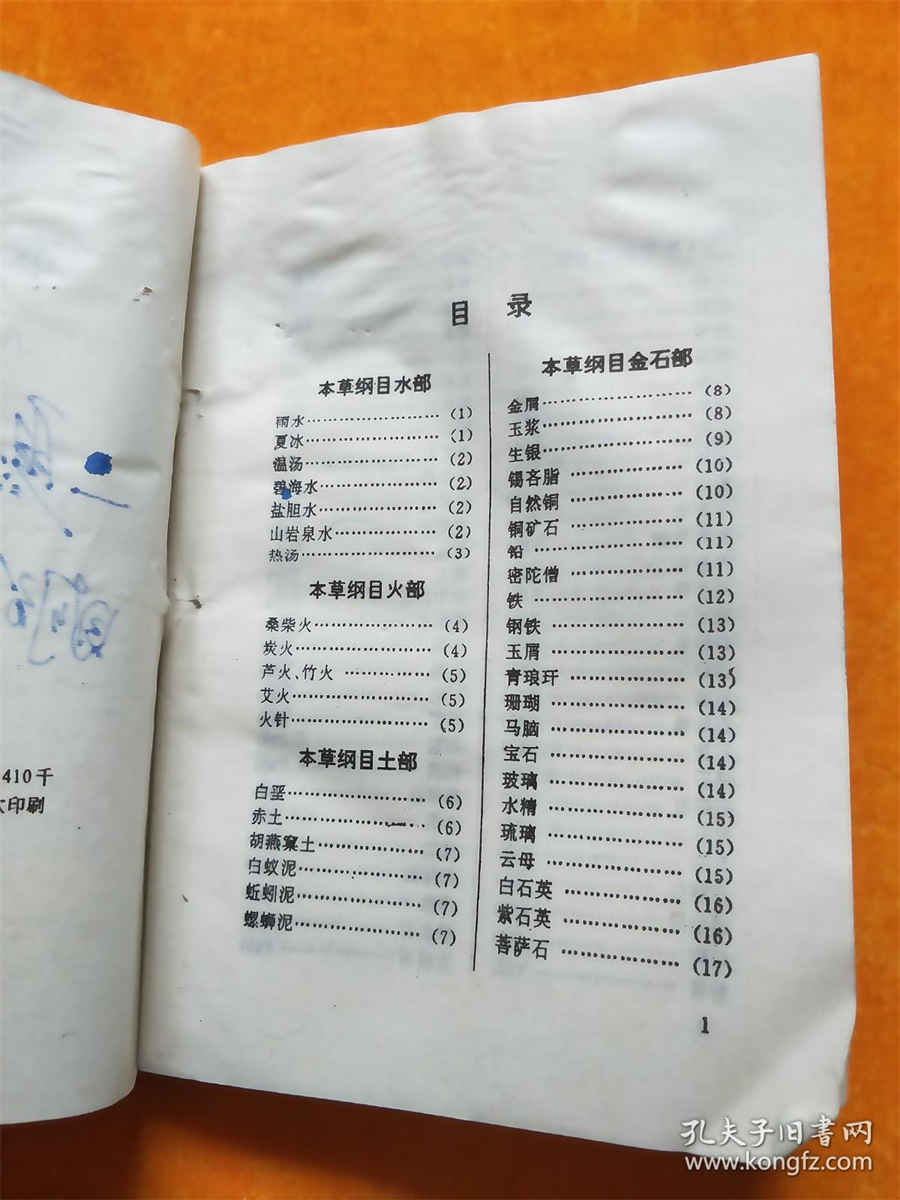 410千
印刷
目 录
本草纲目水部
雨水……………………(1)
夏冰……………………(1)
温汤……………………(2)
碧海水…………………(2)
盐胆水…………………(2)
山岩泉水………………(2)
热汤……………………(3)
本草纲目火部
桑柴火…………………(4)
炭火……………………(4)
芦火、竹火……………(5)
艾火……………………(5)
火针……………………(5)
本草纲目土部
白垩……………………(6)
赤土……………………(6)
胡燕窠土………………(7)
白蚁泥…………………(7)
蚯蚓泥…………………(7)
螺蛳泥…………………(7)
本草纲目金石部
金屑……………………(8)
玉浆……………………(8)
生银……………………(9)
锡吝脂…………………(10)
自然铜…………………(10)
铜矿石…………………(11)
铅………………………(11)
密陀僧…………………(11)
铁………………………(12)
钢铁……………………(13)
玉屑……………………(13)
青琅玕…………………(13)
珊瑚……………………(14)
马脑……………………(14)
宝石……………………(14)
玻璃……………………(14)
水精……………………(15)
琉璃……………………(15)
云母……………………(15)
白石英…………………(16)
紫石英…………………(16)
菩萨石…………………(17)
1
孔夫子旧書网
www.kongfz.com